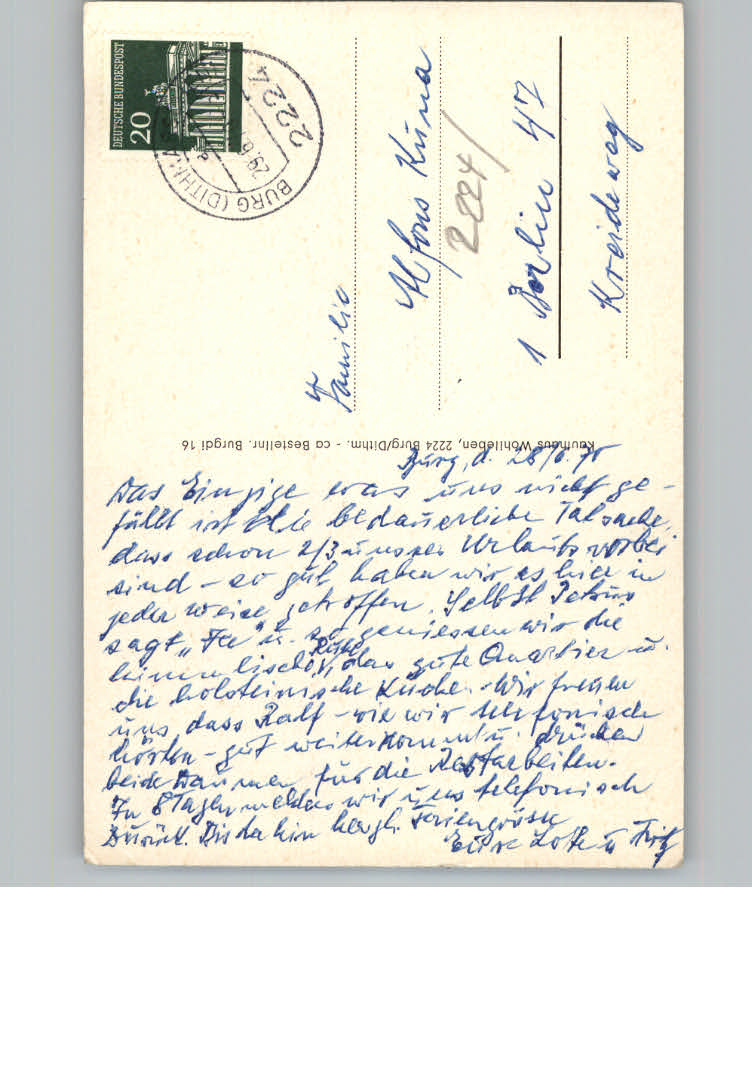 DEUTSCHE BUNDESPOST
20
2224
BURG (DITHM
29.6.
Familie
Alfons Kuna
2224/
1 Berlin 47
Kreideweg
Kaufhaus Wohlleben, 2224 Burg/Dithm. - ca Bestellnr. Burgdi 16
Burg, d. 28/6.70
Das Einzige was uns nicht ge-
fällt ist die bedauerliche Tatsache,
dass schon 2/3 unseres Urlaubs vorbei
sind - so gut haben wir es hier in
jeder weise getroffen. Selbst Petrus
sagt „Ja" u. so geniessen wir die
himmlische Ruhe, das gute Quartier u.
die holsteinische Küche. Wir freuen
uns dass Ralf - wie wir telefonisch
hörten - gut weiterkommt u. drücken
beide Daumen für die Restarbeiten.
In 8 Tagen melden wir uns telefonisch
zurück. Bis dahin herzl. Feriengrüsse
Eure Lotte u Fritz